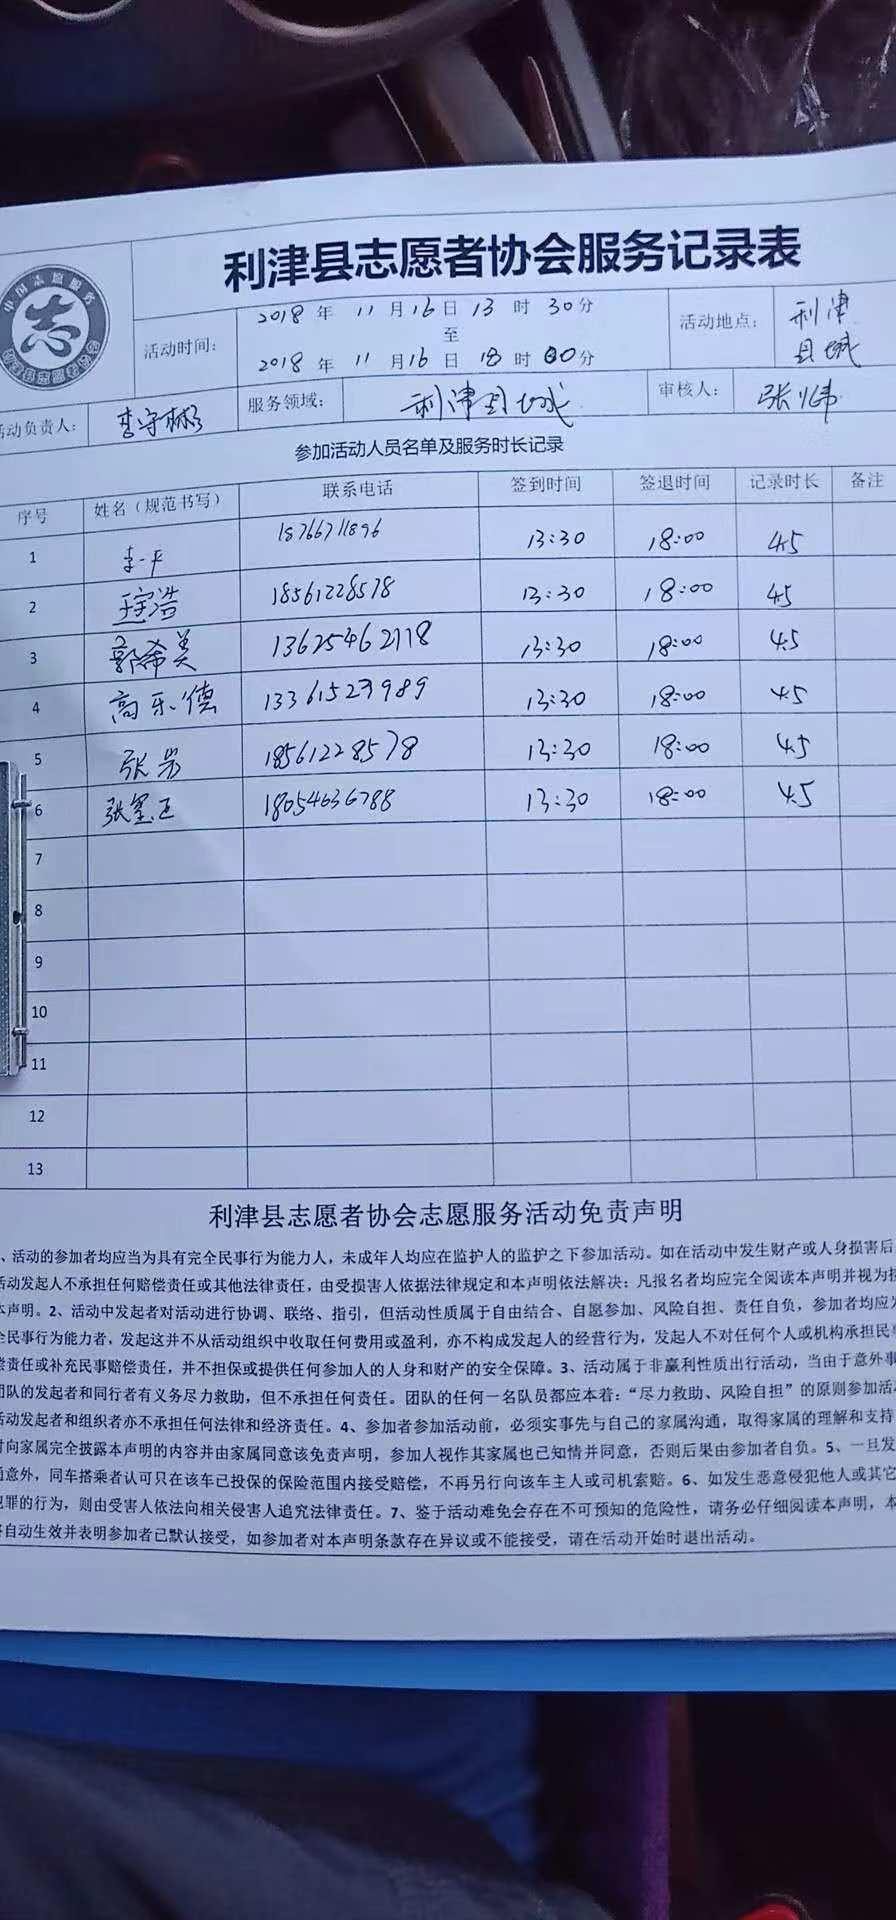 利津县志愿者协会服务记录表
中国志愿服务
志
活动时间：
2018 年 11 月 16 日 13 时 30 分
至
2018 年 11 月 16 日 18 时 00 分
活动地点：
利津
县城
活动负责人：
李守彬
服务领域：
利津县城
审核人：
张炜
参加活动人员名单及服务时长记录
序号 姓名（规范书写） 联系电话 签到时间 签退时间 记录时长 备注
1 李一平 18766711896 13:30 18:00 4.5
2 18561228578 13:30 18:00 4.5
3 郭希美 13625462118 13:30 18:00 4.5
4 高乐德 13361523989 13:30 18:00 4.5
5 张岩 18561228578 13:30 18:00 4.5
6 张墨正 18054636788 13:30 18:00 4.5
7
8
9
10
11
12
13
利津县志愿者协会志愿服务活动免责声明
、活动的参加者均应当为具有完全民事行为能力人，未成年人均应在监护人的监护之下参加活动。如在活动中发生财产或人身损害后
活动发起人不承担任何赔偿责任或其他法律责任，由受损害人依据法律规定和本声明依法解决；凡报名者均应完全阅读本声明并视为接
本声明。2、活动中发起者对活动进行协调、联络、指引，但活动性质属于自由结合、自愿参加、风险自担、责任自负，参加者均应为
全民事行为能力者，发起这并不从活动组织中收取任何费用或盈利，亦不构成发起人的经营行为，发起人不对任何个人或机构承担民事
偿责任或补充民事赔偿责任，并不担保或提供任何参加人的人身和财产的安全保障。3、活动属于非赢利性质出行活动，当由于意外事
团队的发起者和同行者有义务尽力救助，但不承担任何责任。团队的任何一名队员都应本着：“尽力救助、风险自担”的原则参加活动
活动发起者和组织者亦不承担任何法律和经济责任。4、参加者参加活动前，必须实事先与自己的家属沟通，取得家属的理解和支持
时向家属完全披露本声明的内容并由家属同意该免责声明，参加人视作其家属也已知情并同意，否则后果由参加者自负。5、一旦发
通意外，同车搭乘者认可只在该车已投保的保险范围内接受赔偿，不再另行向该车主人或司机索赔。6、如发生恶意侵犯他人或其它
犯罪的行为，则由受害人依法向相关侵害人追究法律责任。7、鉴于活动难免会存在不可预知的危险性，请务必仔细阅读本声明，本
将自动生效并表明参加者已默认接受，如参加者对本声明条款存在异议或不能接受，请在活动开始时退出活动。